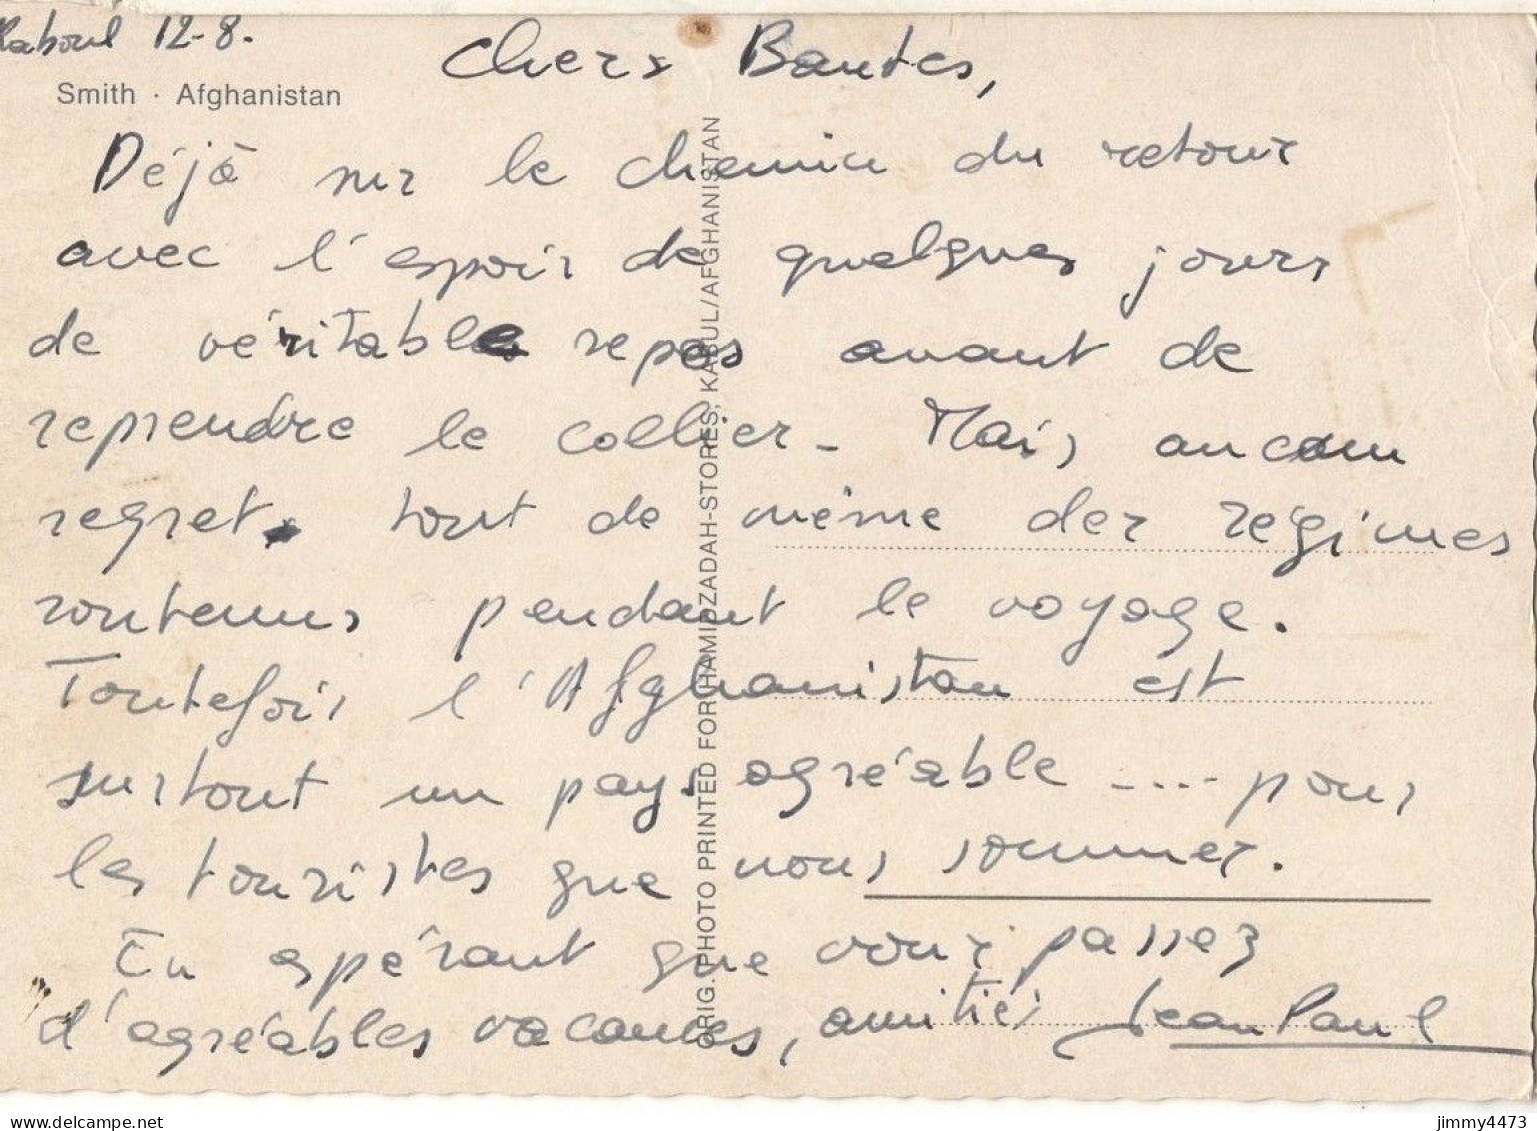 Kaboul 12-8.
Smith · Afghanistan
Chers Bantes,
Déjà sur le chemin du retour
avec l'espoir de quelques jours
de véritable repos avant de
reprendre le collier - Mais aucun
regret tout de même des régimes
soutenus pendant le voyage.
Toutefois l'Afghanistan est
surtout un pays agréable .... pour
les touristes que nous sommes.
En espérant que vous passez
d'agréables vacances, amitiés Jean Paul
ORIG. PHOTO PRINTED FOR HAMIDZADAH-STORES, KABUL/AFGHANISTAN
www.delcampe.net
jimmy4473